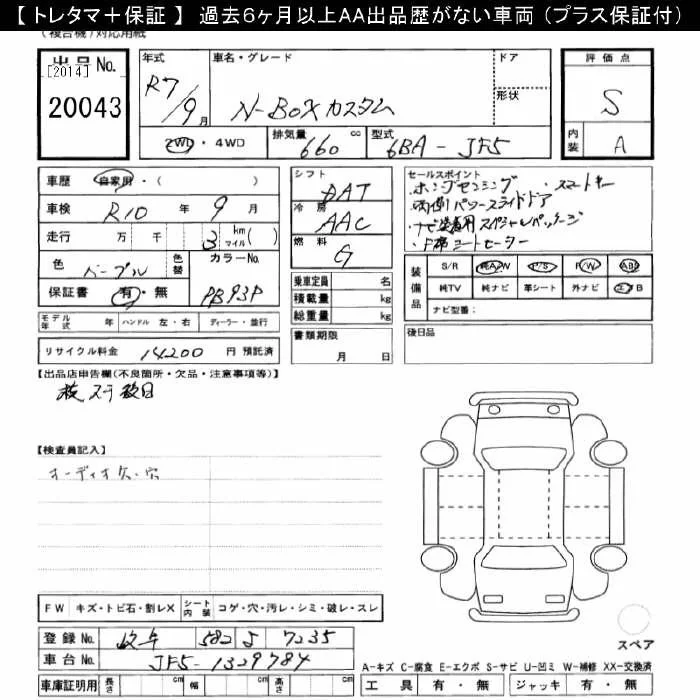 【 トレタマ＋保証 】 過去６ヶ月以上ＡＡ出品歴がない車両（プラス保証付）
（複合機）対応用紙
出品No.
[2014]
20043
年式 R7/9月
車名・グレード N-BOXカスタム
ドア
形状
2WD・4WD
排気量 660 cc
型式 6BA-JF5
評価点 S
内装 A
車歴 自家用・( )
車検 R10年 9月
走行 万 千 3 km マイル( )
色 パープル 色替 カラーNo.
保証書 有・無 PB93P
シフト DAT
冷房 AAC
燃料 G
乗車定員 名
積載量 kg
総重量 kg
書類期限
月 日
セールスポイント
・ホンダセンシング ・スマートキー
・両側パワースライドドア
・ナビ装着用スペシャルパッケージ
・F席シートヒーター
装備品
S/R 純A/W P/S P/W ABS
純TV 純ナビ 革シート 外ナビ エアB
ナビ型番:
モデル年式 年 ハンドル 左・右 ディーラー・並行
後日品
リサイクル料金 14200 円 預託済
【出品店申告欄(不良箇所・欠品・注意事項等)】
【検査員記入】
オーディオ欠・穴
FW キズ・トビ石・割レX シート内装 コゲ・穴・汚レ・シミ・破レ・スレ
登録No. 岐阜 582 よ 7235
車台No. JF5-1329784
車庫証明用 長さ cm 幅 cm 高さ cm
スペア
A-キズ C-腐食 E-エクボ S-サビ U-凹ミ W-補修 XX-交換済
工具 有・無 ジャッキ 有・無